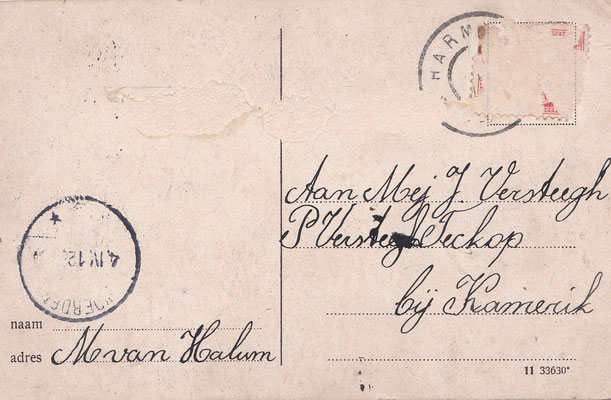 HARM
Aan Mej J Versteegh
P Versteegh Teckop
bij Kamerik
4.IV.12
WOERDEN
naam
adres M van Halum
11 33630*